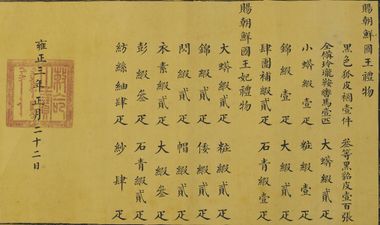 賜朝鮮國王禮物
黑色狐皮褂壹件 叁等黑貂皮壹百張
全備玲瓏鞍轡馬壹匹 大蟒緞貳疋
小蟒緞壹疋 粧緞壹疋
錦緞壹疋 大緞貳疋
肆團補緞貳疋 石青緞壹疋
賜朝鮮國王妃禮物
大蟒緞貳疋 粧緞貳疋
錦緞貳疋 倭緞貳疋
閃緞貳疋 帽緞貳疋
衣素緞貳疋 大緞叁疋
彭緞叁疋 石青緞貳疋
紡絲紬肆疋 紗肆疋
雍正三年正月二十二日